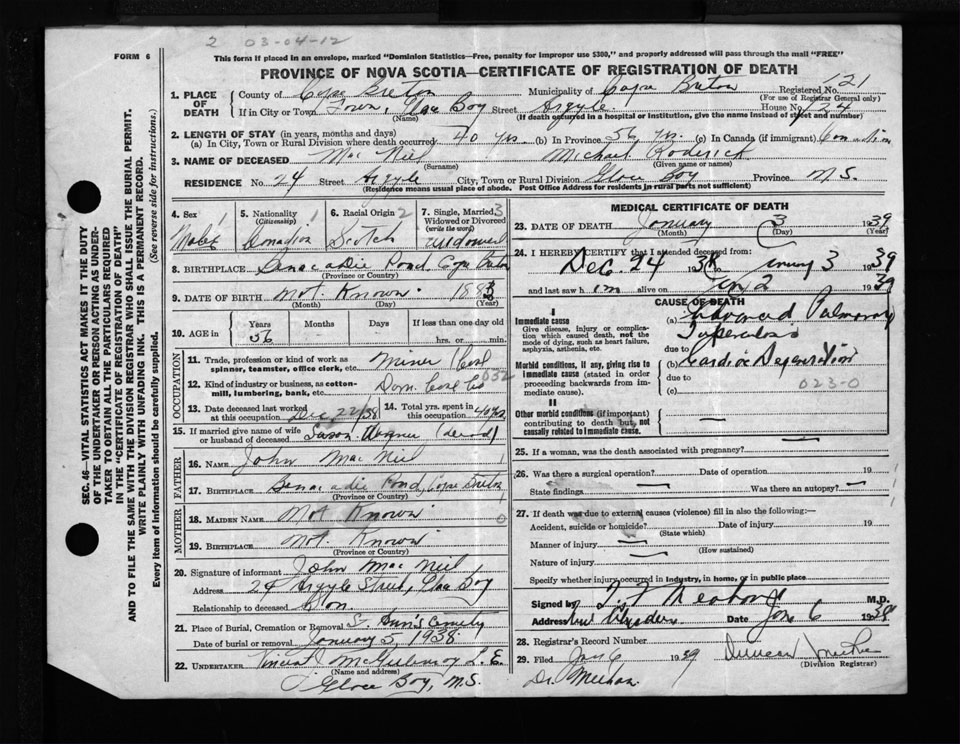 2 03-04-12
FORM 6
This form if placed in an envelope, marked "Dominion Statistics—Free, penalty for improper use $300," and properly addressed will pass through the mail "FREE"
PROVINCE OF NOVA SCOTIA—CERTIFICATE OF REGISTRATION OF DEATH
SEC. 46—VITAL STATISTICS ACT MAKES IT THE DUTY
OF THE UNDERTAKER OR PERSON ACTING AS UNDER-
TAKER TO OBTAIN ALL THE PARTICULARS REQUIRED
IN THE "CERTIFICATE OF REGISTRATION OF DEATH"
AND TO FILE THE SAME WITH THE DIVISION REGISTRAR WHO SHALL ISSUE THE BURIAL PERMIT.
WRITE PLAINLY WITH UNFADING INK. THIS IS A PERMANENT RECORD.
Every item of Information should be carefully supplied. (See reverse side for instructions.)
1. PLACE OF DEATH
County of Cape Breton Municipality of Cape Breton Registered No. 121
(For use of Registrar General only)
If in City or Town Town, Glace Bay Street Argyle House No.
(Name) (If death occurred in a hospital or institution, give the name instead of street and number)
2. LENGTH OF STAY (in years, months and days)
(a) In City, Town or Rural Division where death occurred 40 yrs. (b) In Province 56 yrs. (c) In Canada (if immigrant)
3. NAME OF DECEASED Mac Neil Michael Roderick
(Surname) (Given name or names)
RESIDENCE No. 24 Street Argyle City, Town or Rural Division Glace Bay Province N.S.
(Residence means usual place of abode. Post Office Address for residents in rural parts not sufficient)
4. Sex 1 Male
5. Nationality (Citizenship) 1 Canadian
6. Racial Origin 2 Scotch
7. Single, Married, Widowed or Divorced (write the word) 3 Widower
8. BIRTHPLACE Benacadie Pond, Cape Breton
(Province or Country)
9. DATE OF BIRTH Not Known 1883
(Month) (Day) (Year)
10. AGE in Years 56 Months Days If less than one day old
hrs. or min.
OCCUPATION
11. Trade, profession or kind of work as
spinner, teamster, office clerk, etc. Miner (Coal
12. Kind of industry or business, as cotton-
mill, lumbering, bank, etc. Dom. Coal Co
13. Date deceased last worked
at this occupation Dec 22/38
14. Total yrs. spent in
this occupation 40 yrs
15. If married give name of wife
or husband of deceased (dead)
FATHER
16. NAME John Mac Neil
17. BIRTHPLACE Benacadie Pond, Cape Breton
(Province or Country)
MOTHER
18. MAIDEN NAME Not Known 0
19. BIRTHPLACE Not Known
(Province or Country)
20. Signature of informant John Mac Neil
Address 24 Argyle Street, Glace Bay
Relationship to deceased Son
21. Place of Burial, Cremation or Removal St. Ann's Cemetry
Date of burial or removal January 5, 1938
22. UNDERTAKER Vincent J McGillivray L.E.
(Name and address)
Glace Bay, N.S.
MEDICAL CERTIFICATE OF DEATH
23. DATE OF DEATH January 3 1939
(Month) (Day) (Year)
24. I HEREBY CERTIFY that I attended deceased from
Dec. 24 1938 to January 3 1939
and last saw him alive on Jan 2 1939
CAUSE OF DEATH
I
Immediate cause
Give disease, injury or complica-
tion which caused death, not the
mode of dying, such as heart failure,
asphyxia, asthenia, etc.
(a) Advanced Pulmonary
Tuberculosis
due to
Morbid conditions, if any, giving rise to
immediate cause (stated in order
proceeding backwards from im-
mediate cause).
(b) Cardiac Degeneration
due to 023-0
(c)
II
Other morbid conditions (if important)
contributing to death but not
causally related to immediate cause.
25. If a woman, was the death associated with pregnancy?
26. Was there a surgical operation? Date of operation 19
State findings Was there an autopsy?
27. If death was due to external causes (violence) fill in also the following:—
Accident, suicide or homicide? Date of injury 19
(State which)
Manner of injury
(How sustained)
Nature of injury
Specify whether injury occurred in industry, in home, or in public place
Signed by M.D.
Address New Aberdeen Date Jan 6 1938
28. Registrar's Record Number
29. Filed Jan 6 1939 Duncan
(Division Registrar)
Dr. Meehan